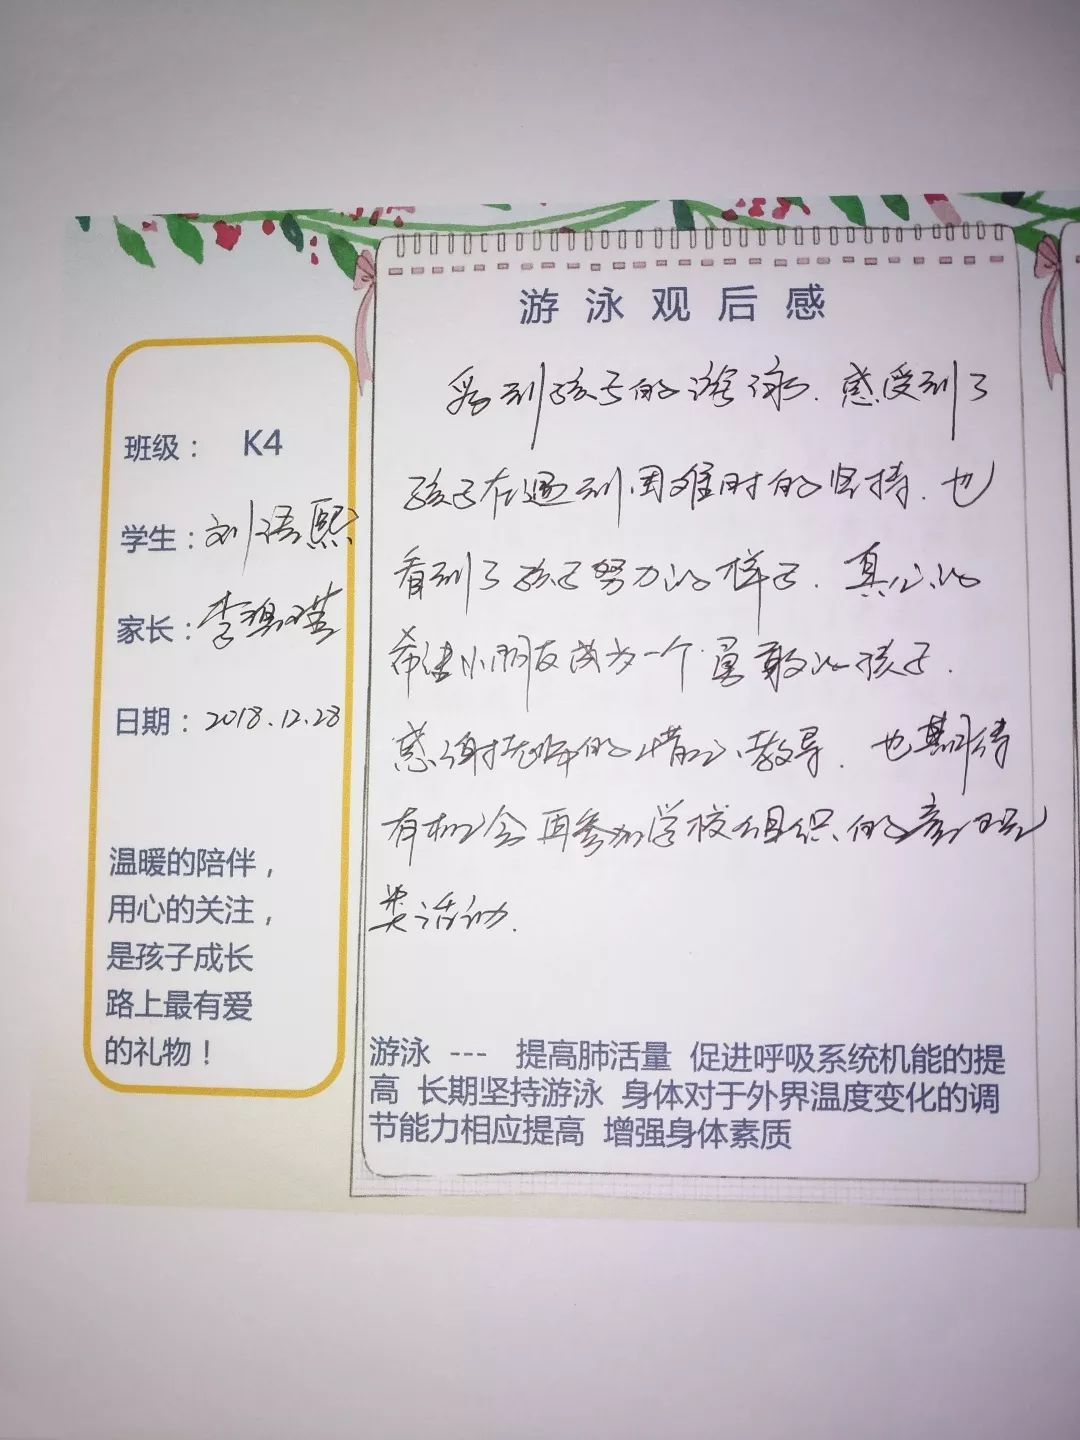 游泳观后感
看到孩子的游泳.感受到了
孩子在遇到困难时的坚持.也
看到了孩子努力的样子.真心的
希望小朋友成为一个勇敢的孩子.
感谢老师的精心教导.也期待
有机会再参加学校组织的亲子
类活动.
班级： K4
学生：刘语熙
家长：李
日期：2018.12.28
温暖的陪伴，
用心的关注，
是孩子成长
路上最有爱
的礼物！
游泳 --- 提高肺活量 促进呼吸系统机能的提
高 长期坚持游泳 身体对于外界温度变化的调
节能力相应提高 增强身体素质